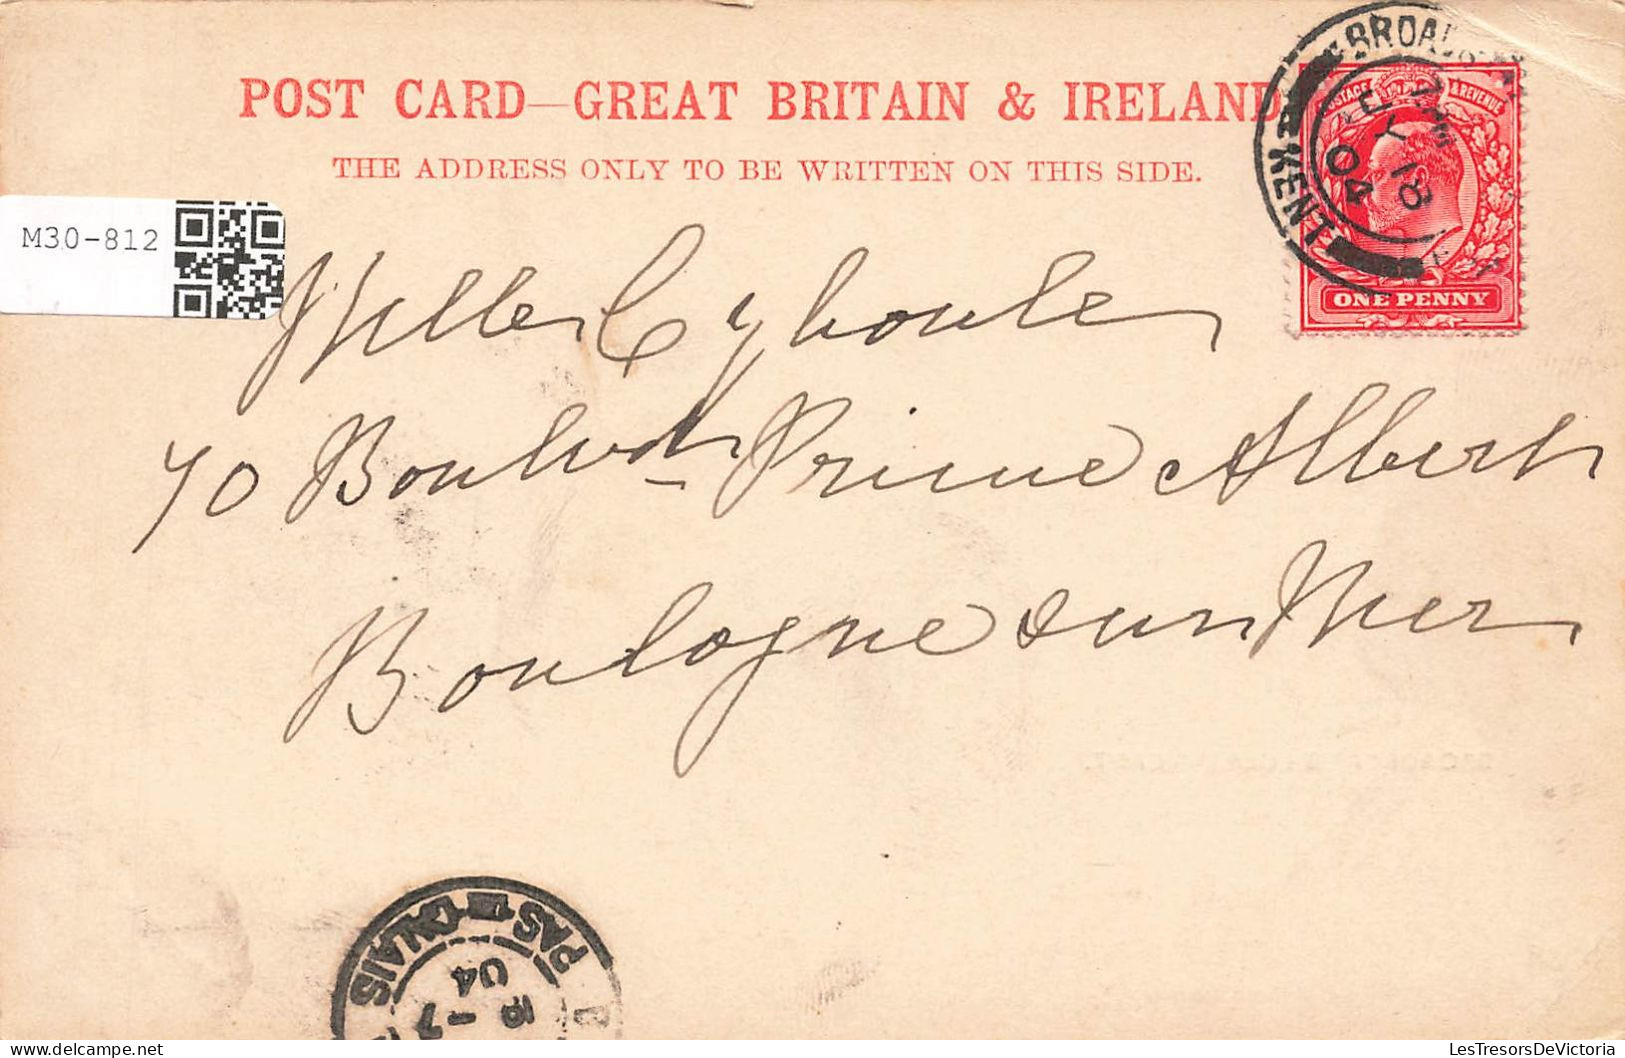 POST CARD—GREAT BRITAIN & IRELAND
THE ADDRESS ONLY TO BE WRITTEN ON THIS SIDE.
KENT
JY 18
04
POSTAGE & REVENUE
ONE PENNY
M30-812
Melle Cyboule
70 Boulvd Prince Albert
Boulogne sur Mer
PAS DE CALAIS
04
LesTresorsDeVictoria.com